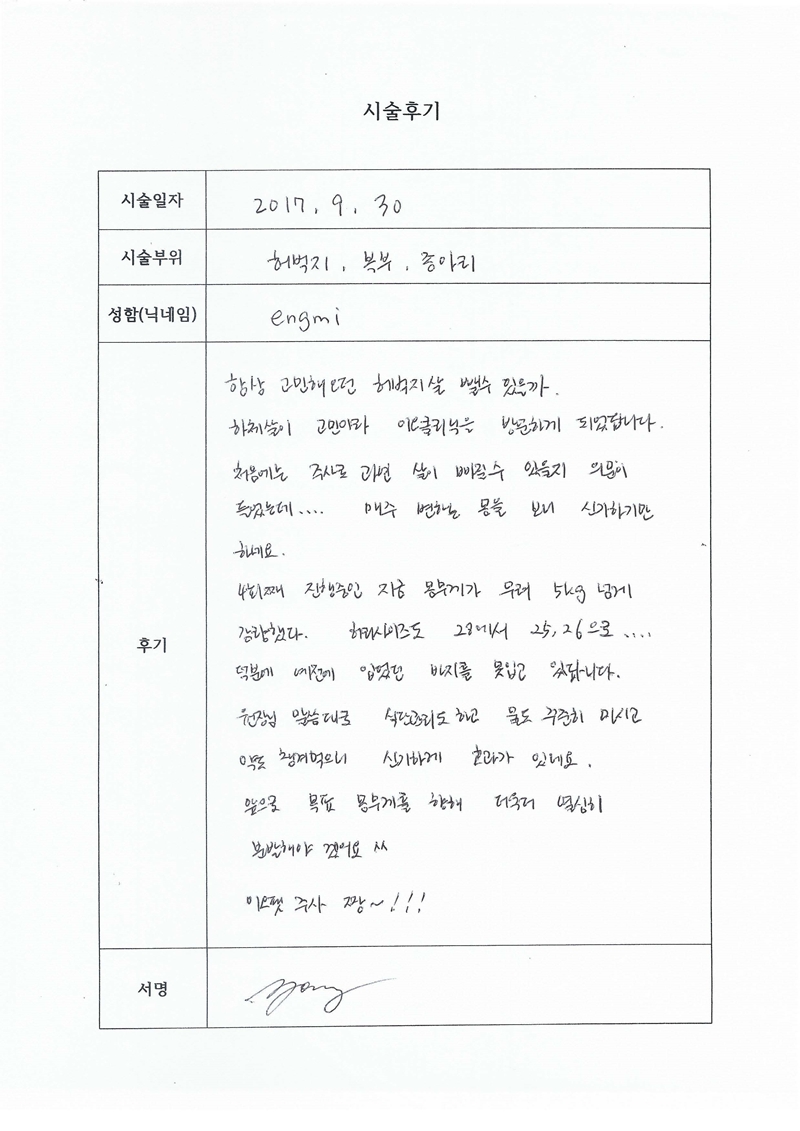 시술후기
시술일자 2017. 9. 30
시술부위 허벅지, 복부, 종아리
성함(닉네임) engmi
후기
항상 고민해오던 허벅지살 뺄수 있을까.
하체살이 고민이라 이오클리닉은 방문하게 되었답니다.
처음에는 주사로 과연 살이 빠질수 있을지 의문이
들었는데.... 매주 변하는 몸을 보니 신기하기만
하네요.
4회째 진행중인 지금 몸무게가 무려 5kg 넘게
감량했다. 허리사이즈도 28에서 25,26으로....
덕분에 예전에 입었던 바지를 못입고 있답니다.
원장님 말씀대로 식단조리도 하고 물도 꾸준히 마시고
약도 챙겨먹으니 신기하게 효과가 있네요.
앞으로 목표 몸무게를 향해 더욱더 열심히
분발해야 겠어요 ^^
이오팻 주사 짱~!!!
서명